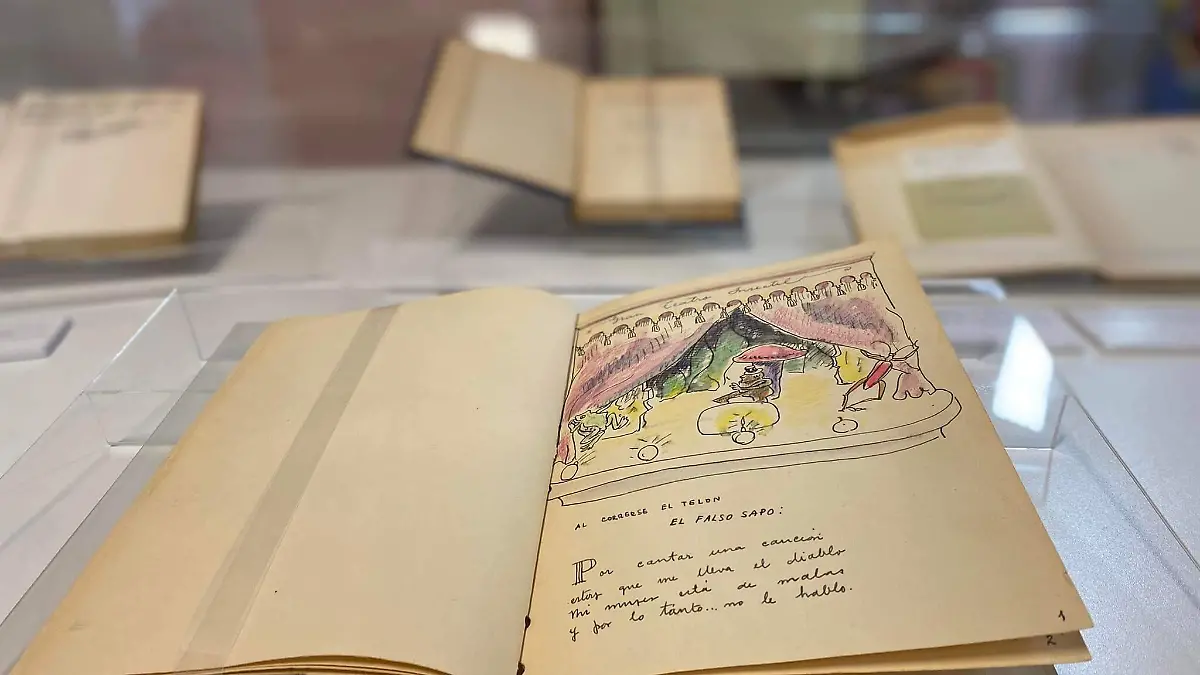 Gran Teatro Insectil
AL CORRERSE EL TELON
EL FALSO SAPO:
Por cantar una canción
estoy que me lleva el diablo
mi mujer está de malas
y por lo tanto... no le hablo.
1
2